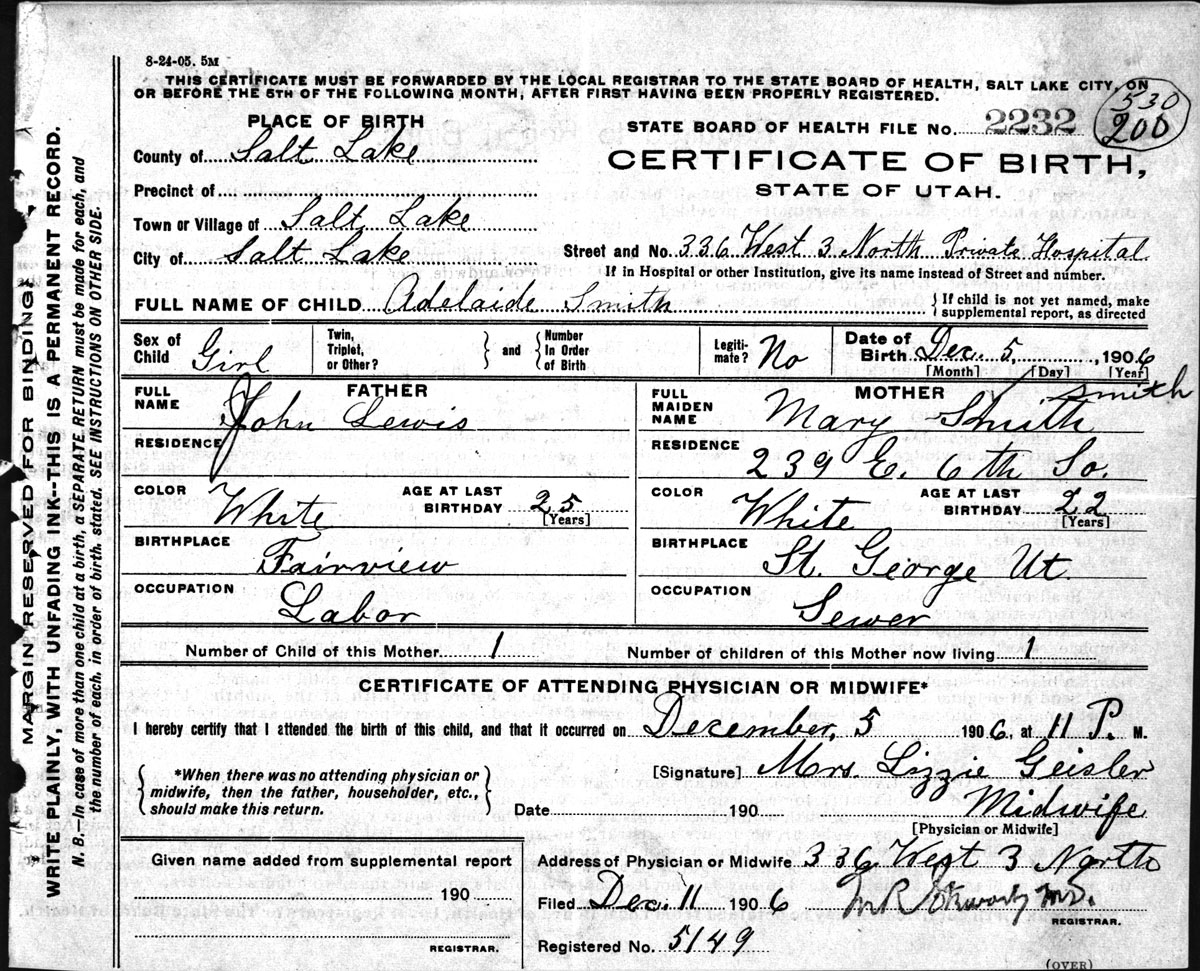 8-24-05. 5M
THIS CERTIFICATE MUST BE FORWARDED BY THE LOCAL REGISTRAR TO THE STATE BOARD OF HEALTH, SALT LAKE CITY, ON
OR BEFORE THE 5TH OF THE FOLLOWING MONTH, AFTER FIRST HAVING BEEN PROPERLY REGISTERED.
530
200
PLACE OF BIRTH
STATE BOARD OF HEALTH FILE No. 2232
County of Salt Lake
CERTIFICATE OF BIRTH,
STATE OF UTAH.
Precinct of
Town or Village of Salt Lake
City of Salt Lake
Street and No. 336 West 3 North Private Hospital
If in Hospital or other Institution, give its name instead of Street and number.
FULL NAME OF CHILD Adelaide Smith
If child is not yet named, make
supplemental report, as directed
Sex of Child Girl
Twin, Triplet, or Other? and Number In Order of Birth
Legiti-mate? No
Date of Birth Dec. 5, 1906
[Month] [Day] [Year]
FATHER
FULL NAME John Lewis
RESIDENCE
COLOR White
AGE AT LAST BIRTHDAY 25
[Years]
BIRTHPLACE Fairview
OCCUPATION Labor
MOTHER
Smith
FULL MAIDEN NAME Mary Smith
RESIDENCE 239 E. 6th So.
COLOR White
AGE AT LAST BIRTHDAY 22
[Years]
BIRTHPLACE St. George Ut.
OCCUPATION Sewer
Number of Child of this Mother 1
Number of children of this Mother now living 1
CERTIFICATE OF ATTENDING PHYSICIAN OR MIDWIFE*
I hereby certify that I attended the birth of this child, and that it occurred on December, 5 1906, at 11 P. M.
*When there was no attending physician or
midwife, then the father, householder, etc.,
should make this return.
[Signature] Mrs. Lizzie Geisler
Date 190 Midwife
[Physician or Midwife]
Given name added from supplemental report
190
REGISTRAR.
Address of Physician or Midwife 336 West 3 North
Filed Dec. 11 1906
REGISTRAR.
Registered No. 5149
(OVER)
MARGIN RESERVED FOR BINDING.
WRITE PLAINLY, WITH UNFADING INK--THIS IS A PERMANENT RECORD.
N. B.--In case of more than one child at a birth, a SEPARATE RETURN must be made for each, and
the number of each, in order of birth, stated. SEE INSTRUCTIONS ON OTHER SIDE.